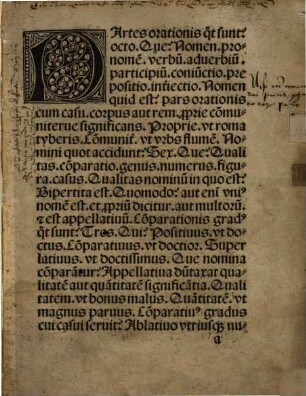 PArtes orationis qͥt sunt:
octo. Que: Nomen. pro
nomē. verbū. aduerbiū.
participiū. coniūctio. pre
positio. inťiectio. Nomen
quid est: pars orationis
cum casu. corpus aut rem. ꝓprie cōmu
niterue significans. Proprie. vt roma
tyberis. Cōmunit̓. vt vrbs flumē. No
mini quot accidunt: Sex. Que: Quali
tas. cōparatio. genus. numerus. figu
ra. casus. Qualitas nominū in quo est:
Bipertita est. Quomodo: aut eni͂ vni꜒
nomē est. et ꝓpriū dicitur. aut multorū
⁊ est appellatiuū. Cōparationis gradꝰ
qͦt sunt: Tres. Qui: Positiuus. vt do
ctus. Cōparatiuus. vt doctior. Super
latiuus. vt doctissimus. Que nomina
cōparātur: Appellatiua dūtaxat qua
litatē aut quātitatē significātia. Quali
tatem. vt bonus malus. Quātitatē. vt
magnus paruus. Cōparatiuꝰ gradus
cui casui seruit: Ablatiuo vtriusqꝫ nu
a